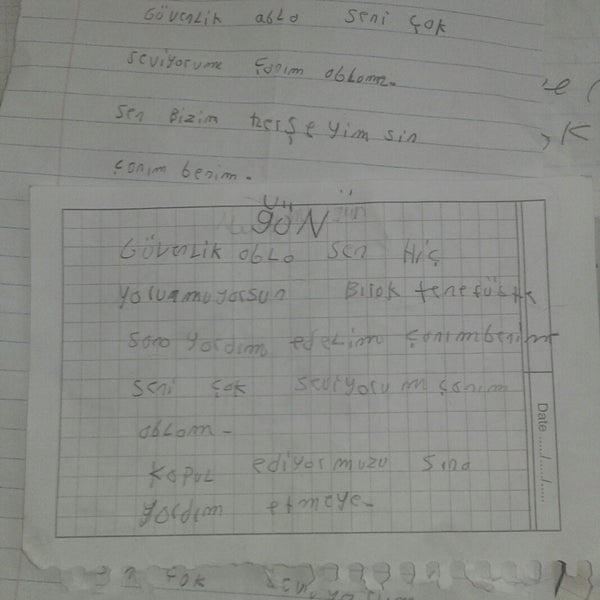 GÜVENLİK abLo seni çok
seviyorum çanim ablom.
sen Bizim herşeyimsin
çanim benim.
GÜVENLİK abLo sen Hiç
yorurmuyorsun Birok tenefüste
sana yardım edelim çanımbenim
seni çok seviyorum çanım
oblom-
Kabul ediyormuzu sina
yardım etmeye-
Date ...../...../.....
çok